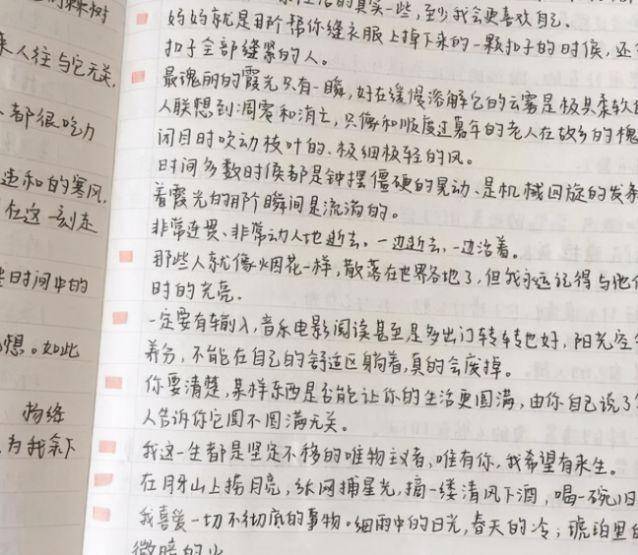 的棘树
来人往与它无关,
都很吃力
违和的寒风,
在这一刻走
时间中的
想。如此
物络
为我余下
生活的真实一些,至少我会更喜欢自己.
妈妈就是那阶帮你缝衣服上掉下来的一颗扣子的时候,还
扣子全部缝紧的人。
最瑰丽的霞光只有一瞬,好在缓慢溶解它的云雾是极其柔软的
人联想到凋零和消亡,只像和顺度过暮年的老人在故乡的槐
闭目时吹动枝叶的、极细极轻的风。
时间多数时候都是钟摆僵硬的晃动、是机械回旋的发条
着霞光的那阶瞬间是流淌的。
非常连贯、非常动人地逝去。一边逝去,一边活着。
那些人就像烟花一样,散落在世界各地了,但我永远记得与他们
时的光亮.
一定要有输入,音乐电影阅读甚至是多出门转转也好,阳光空气
养分,不能在自己的舒适区躺着,真的会废掉。
你要清楚,某样东西是否能让你的生活更圆满,由你自己说了算
人告诉你它圆不圆满无关。
我这一生都是坚定不移的唯物主义者,唯有你,我希望有来生。
在月牙山上捞月亮,纵网捕星光,摘一缕清风下酒,喝一碗旧
我喜爱一切不彻底的事物。细雨中的日光,春天的冷;琥珀里
微暗的火